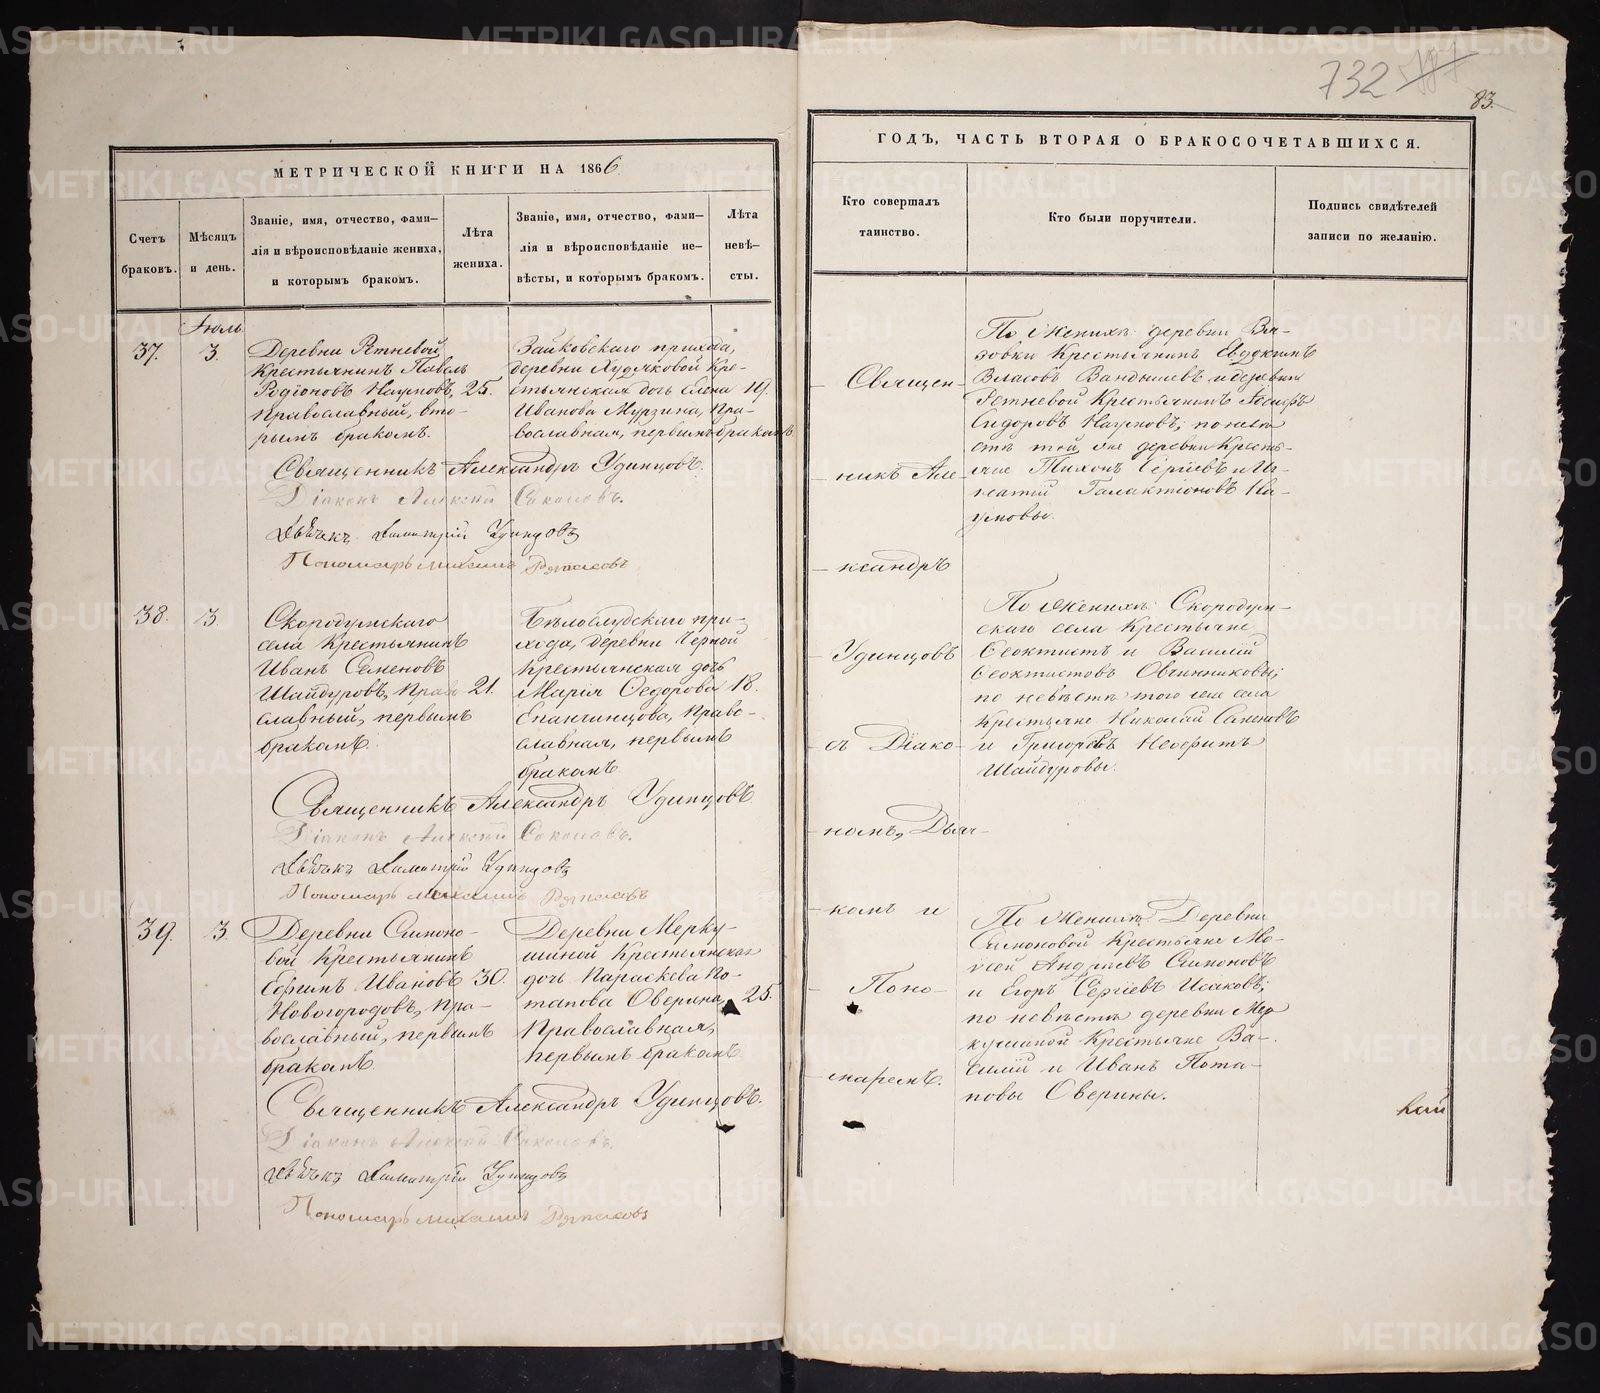 732
83.
МЕТРИЧЕСКОЙ КНИГИ НА 1866
Счетъ браковъ.
Мѣсяцъ и день.
Званіе, имя, отчество, фами-
лія и вѣроисповѣданіе жениха,
и которымъ бракомъ.
Лѣта жениха.
Званіе, имя, отчество, фами-
лія и вѣроисповѣданіе не-
вѣсты, и которымъ бракомъ.
Лѣта
невѣ-
сты.
Іюль
37.
3.
Деревни Рѣтневой
Крестьянинъ Павелъ
Родіоновъ Наумовъ,
православный, вто-
рымъ бракомъ.
25.
Зайковскаго прихода,
деревни Кре-
стьянская дочь Елена
Иванова Мурзина, пра-
вославная, первымъ бракомъ
19.
Священникъ Александръ Удинцовъ.
Діаконъ Алексій Соколовъ.
Дьячекъ Димитрій Удинцовъ
Пономарь Михаилъ
38.
3.
Скородумскаго
села Крестьянинъ
Иванъ Семеновъ
Шайдуровъ, прав
славный, первымъ
бракомъ.
21.
Бѣлослудскаго при-
хода, деревни Черной
крестьянская дочь
Марія Ѳедорова
Епанчинцова, право-
славная, первымъ
бракомъ.
18.
Священникъ Александръ Удинцовъ
Діаконъ Алексій Соколовъ.
Дьячекъ Димитрій Удинцовъ
Пономарь Михаилъ
39.
3.
Деревни Симоно-
вой Крестьянинъ
Ефимъ Ивановъ
Новогородовъ, пра-
вославный, первымъ
бракомъ.
30.
Деревни Мерку-
шиной Крестьянская
дочь Параскева По-
тапова Оверина,
православная,
первымъ бракомъ.
25.
Священникъ Александръ Удинцовъ.
Діаконъ Алексій Соколовъ.
Дьячекъ Димитрій Удинцовъ
Пономарь Михаилъ
ГОДЪ, ЧАСТЬ ВТОРАЯ О БРАКОСОЧЕТАВШИХСЯ.
Кто совершалъ
таинство.
Кто были поручители.
Подпись свидѣтелей
записи по желанію.
Священ-
никъ Але-
ксандръ
Удинцовъ
съ Діако-
номъ, Дьяч-
комъ и
Поно-
маремъ.
По женихѣ деревни Вя-
зовки Крестьянинъ Евдокимъ
Власовъ Вандышевъ и деревни
Рѣтневой Крестьянинъ Іосифъ
Сидоровъ Наумовъ; по невѣ-
стѣ той же деревни Кресть-
яне Тихонъ Сергіевъ и Иг-
натій Галактіоновъ На-
умовы.
По женихѣ Скородум-
скаго села Крестьяне
Ѳеоктистъ и Василій
Ѳеоктистовъ Овчинниковы;
по невѣстѣ того же села
Крестьяне Николай Семеновъ
и Григорьевъ Неофитъ
Шайдуровы.
По женихѣ Деревни
Симоновой Крестьяне Мо-
исей Андреевъ Симоновъ
и Егоръ Сергіевъ Исаковъ;
по невѣстѣ деревни Мер
кушиной Крестьяне Ва-
силій и Иванъ Пота-
повы Оверины.
METRIKI.GASO-URAL.RU